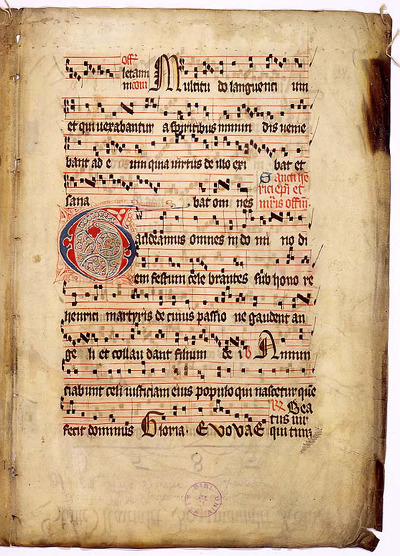 Off.
letamini Multitudo languenti um
et qui vexabantur a spiribus inmun dis venie
bant ad e um quia virtus de illo exi bat et
sana bat om nes Sancti he
rici epi et
mris offm.
Gaudeamus omnes in do mi no di
em festum cele brantes sub hono re
henrici martyris de cuius passio ne gaudent an
ge li et collau dant filium de i Annun
ciabunt celi iusticiam eius populo qui nascetur que
fecit dominus Gloria. Evovae Bea
tus vir
qui tim